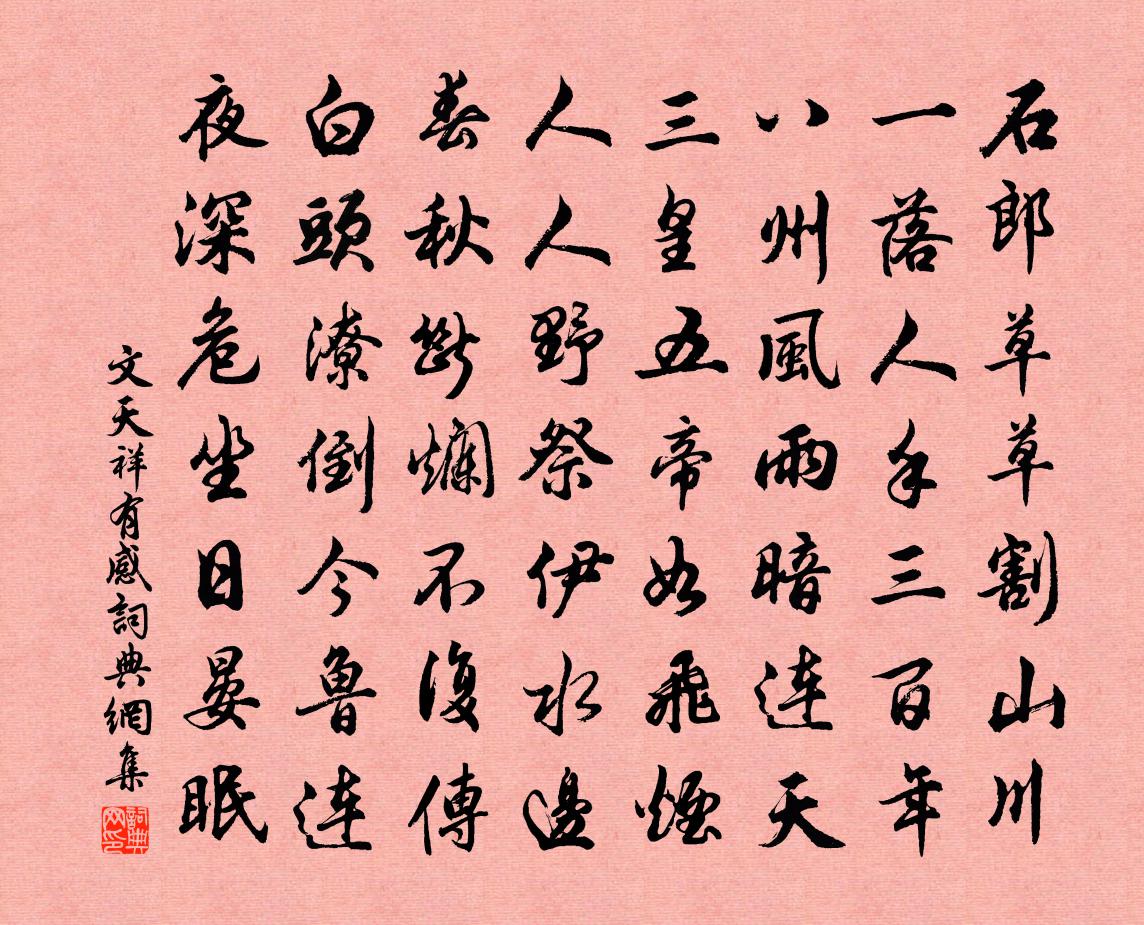 石郎草草割山川
一落人手三百年
八州風雨暗連天
三皇五帝如飛煙
人人野祭伊水邊
春秋斷爛不復傳
白頭潦倒今魯連
夜深危坐日晏眠
文天祥有感詞典網集
詞典网印